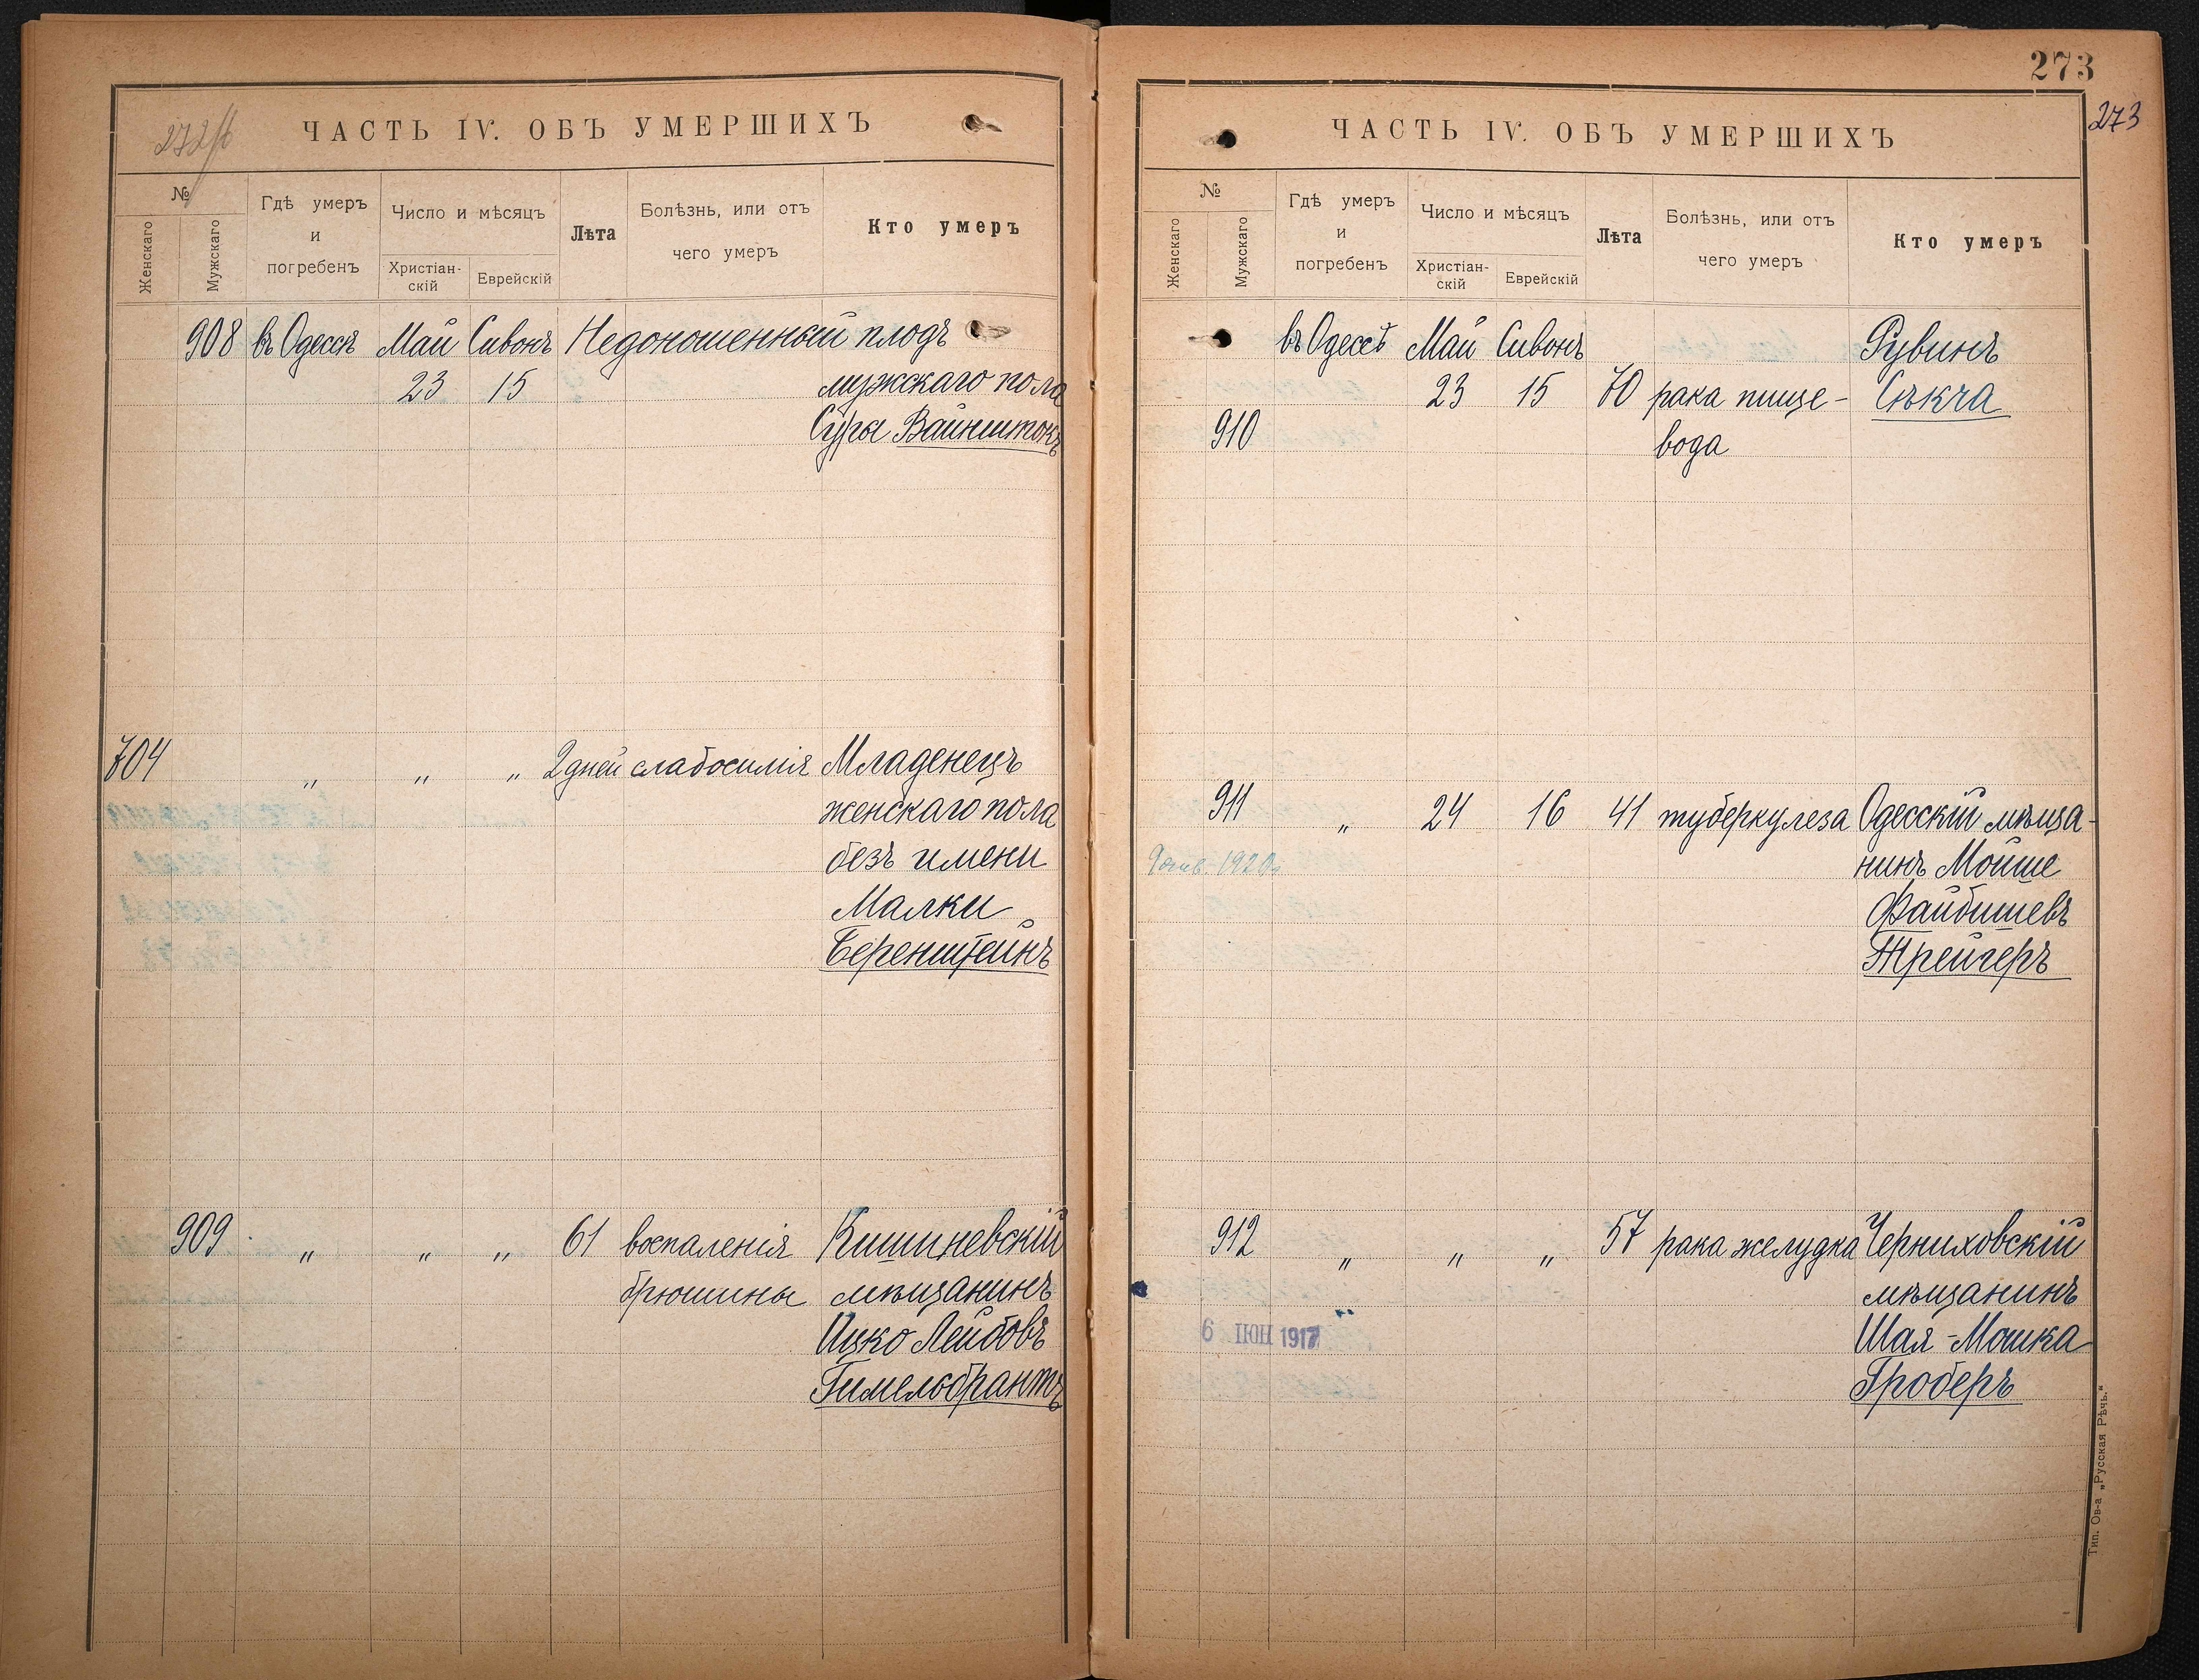 272/б
ЧАСТЬ IV. ОБЪ УМЕРШИХЪ
№
Женскаго
Мужскаго
Гдѣ умеръ
и
погребенъ
Число и мѣсяцъ
Христіан-
скій
Еврейскій
Лѣта
Болѣзнь, или отъ
чего умеръ
Кто умеръ
908 въ Одессѣ Май Сивонъ Недоношенный плодъ
23 15 мужскаго пола
Суры Вайнштокъ
704 „ „ „ 2 дней слабосилія Младенецъ
женскаго пола
безъ имени
Малки
Беренштейнъ
909 „ „ „ 61 воспаленія Кишиневскій
брюшины мѣщанинъ
Ицко Лейбовъ
Гимельбрантъ
273
273
ЧАСТЬ IV. ОБЪ УМЕРШИХЪ
№
Женскаго
Мужскаго
Гдѣ умеръ
и
погребенъ
Число и мѣсяцъ
Христіан-
скій
Еврейскій
Лѣта
Болѣзнь, или отъ
чего умеръ
Кто умеръ
въ Одессѣ Май Сивонъ Рувинъ
23 15 70 рака пище- Сѣкча
910 вода
911 „ 24 16 41 туберкулеза Одесскій мѣща-
нинъ Мойше
Файбишевъ
Трейгеръ
1920
912 „ „ „ 57 рака желудка Черниховскій
мѣщанинъ
Шая-Мошка
Гроберъ
6 ІЮН 1917
Тип. Ов-а „Русская Рѣчь.“